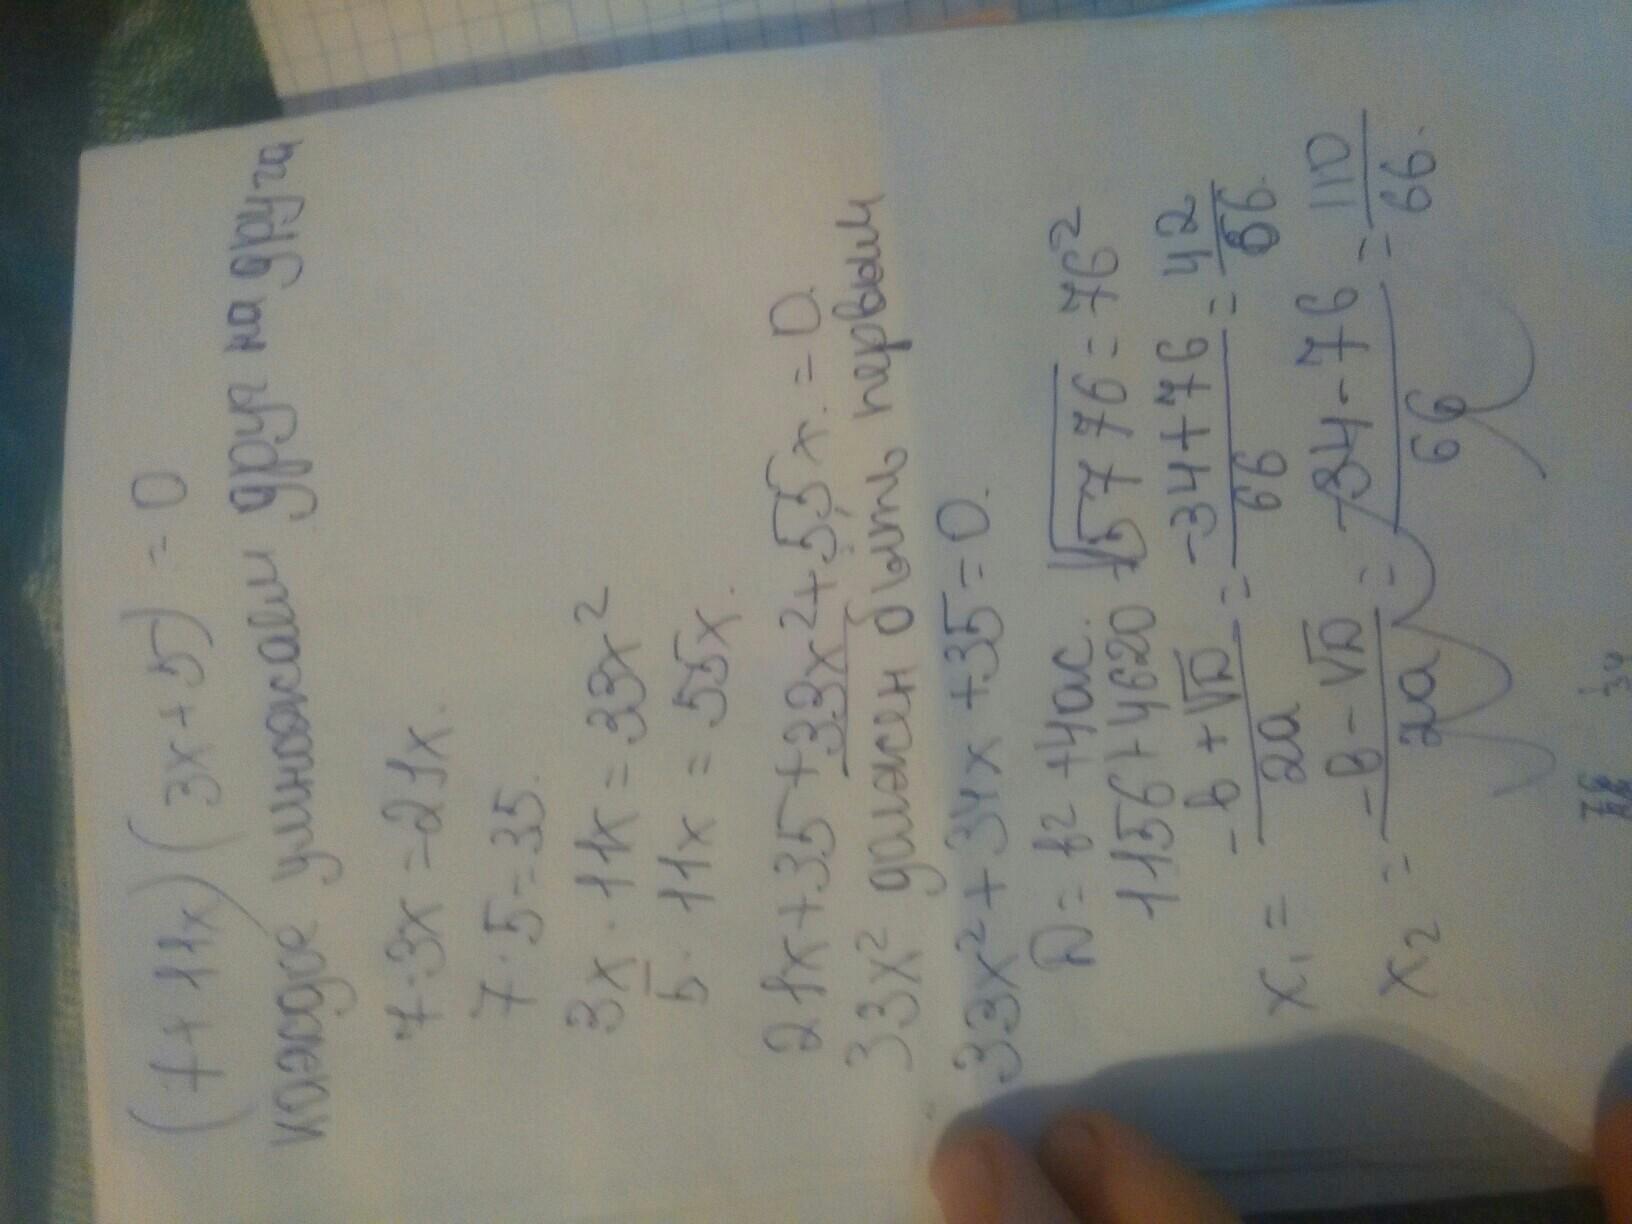 (7+11x)(3x+5)=0
каждое умножаем друг на друга
7·3x=21x.
7·5=35.
3x·11x=33x²
5·11x=55x.
21x+35+33x²+55x.=0.
33x² должен быть первым
33x²+34x+35=0.
D=b²+4ac. √5776=76²
1156+4620
x₁= (-b+√D)/2a = (-34+76)/66 = 42/66.
x₂= (-b-√D)/2a = (-34-76)/66 = 110/66.
34